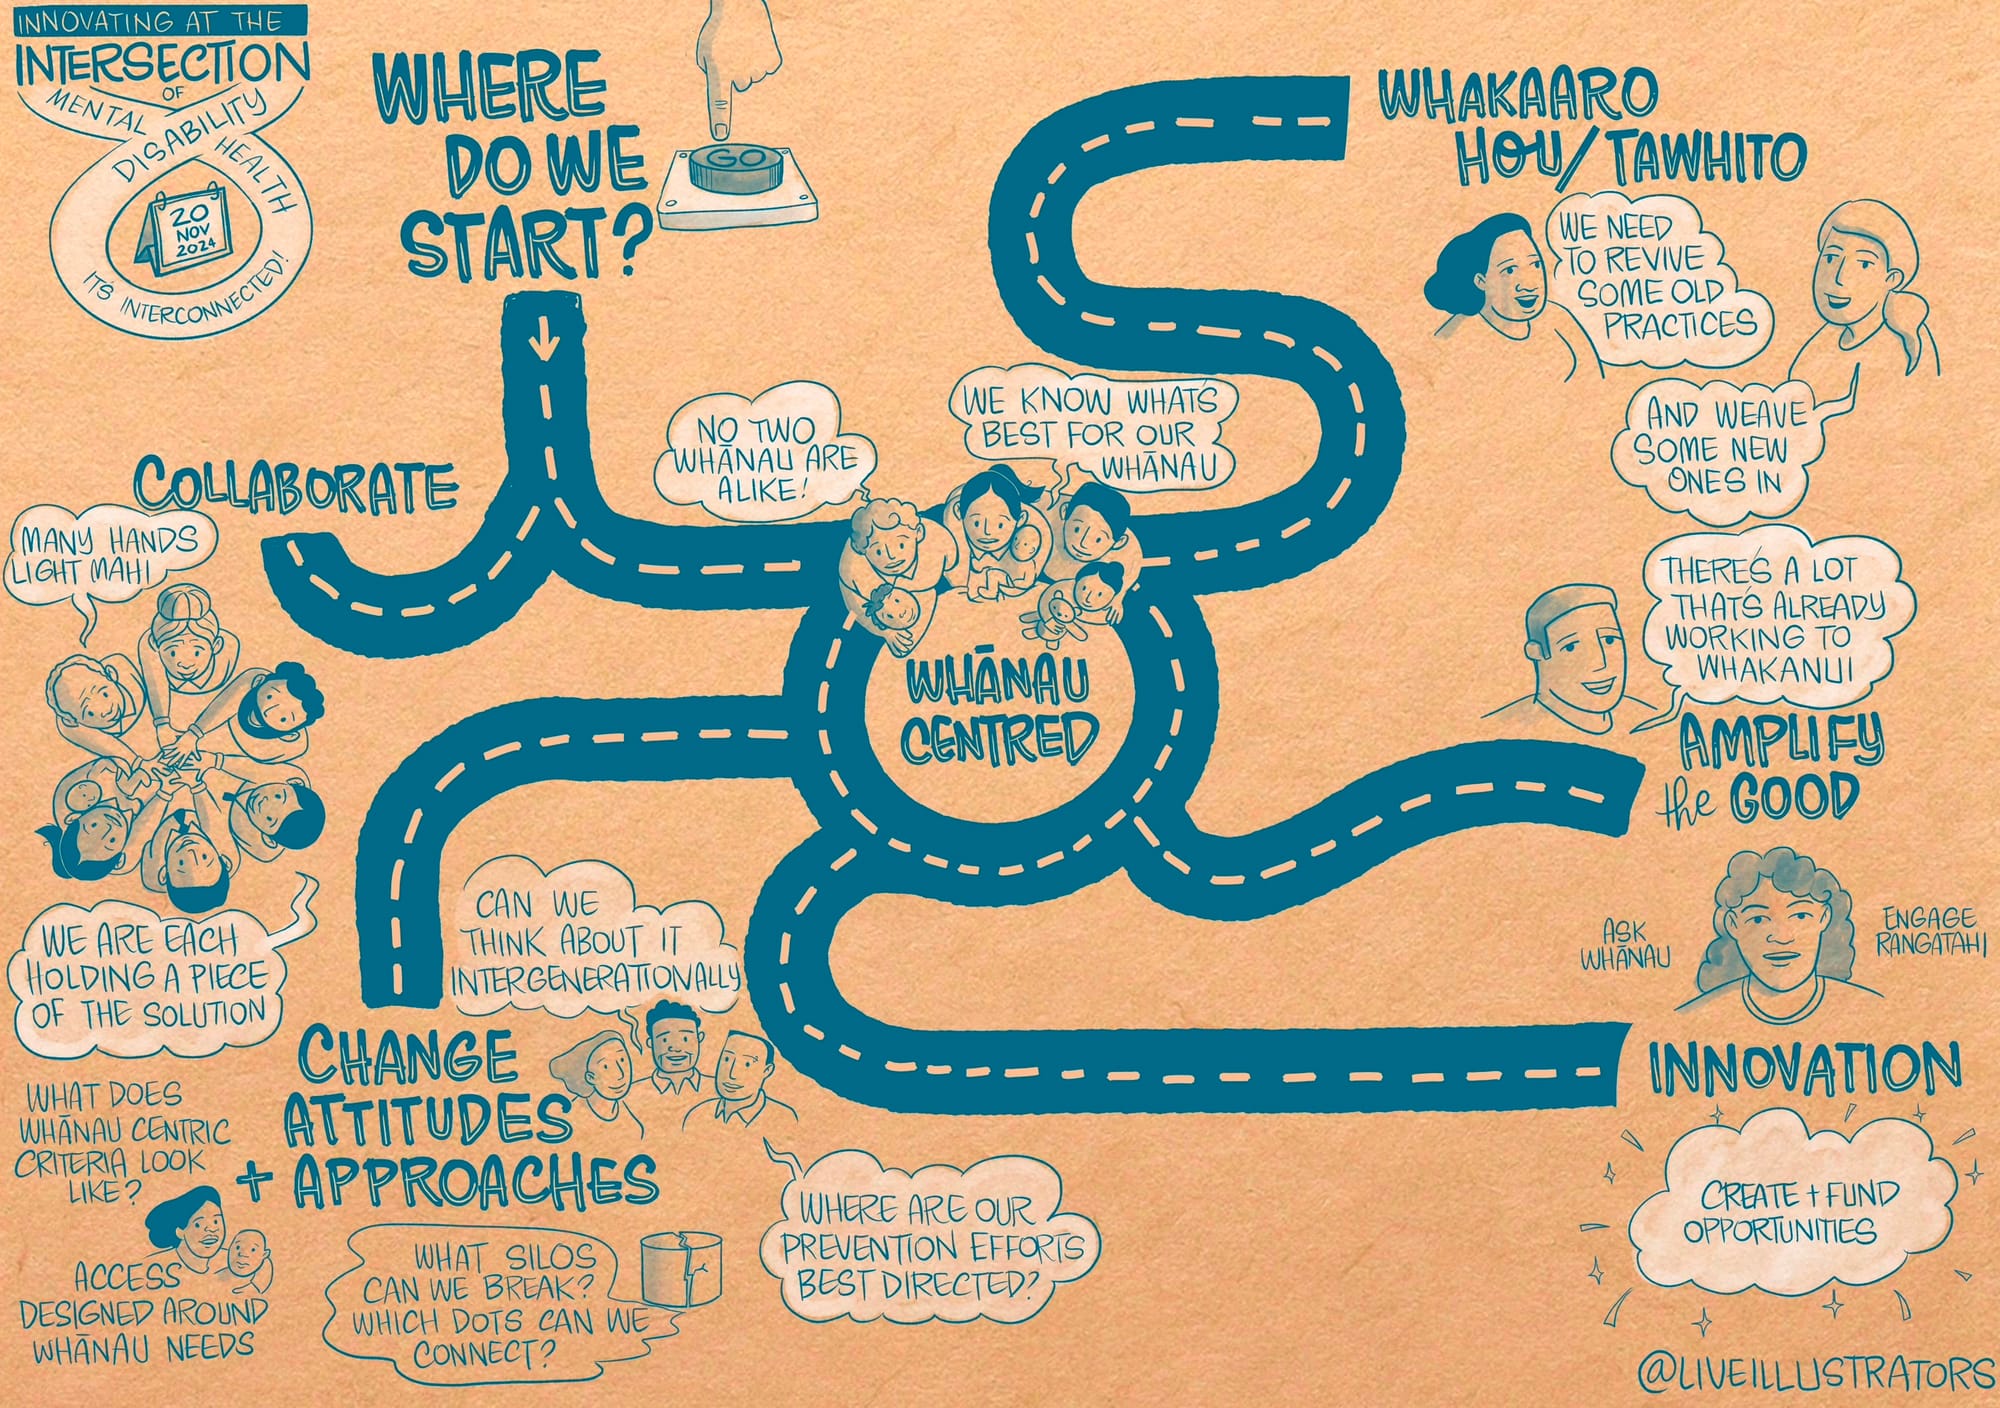 INNOVATING AT THE
INTERSECTION
OF
MENTAL HEALTH
DISABILITY
20
NOV
2024
IT'S INTERCONNECTED!
WHERE
DO WE
START?
GO
COLLABORATE
MANY HANDS
LIGHT MAHI
WE ARE EACH
HOLDING A PIECE
OF THE SOLUTION
NO TWO
WHĀNAU ARE
ALIKE!
WE KNOW WHAT'S
BEST FOR OUR
WHĀNAU
WHĀNAU
CENTRED
WHAKAARO
HOU/TAWHITO
WE NEED
TO REVIVE
SOME OLD
PRACTICES
AND WEAVE
SOME NEW
ONES IN
THERE'S A LOT
THAT'S ALREADY
WORKING TO
WHAKANUI
AMPLIFY
the GOOD
ASK
WHĀNAU
ENGAGE
RANGATAHI
INNOVATION
CREATE + FUND
OPPORTUNITIES
CAN WE
THINK ABOUT IT
INTERGENERATIONALLY
CHANGE
ATTITUDES
+ APPROACHES
WHAT DOES
WHĀNAU CENTRIC
CRITERIA LOOK
LIKE?
ACCESS
DESIGNED AROUND
WHĀNAU NEEDS
WHAT SILOS
CAN WE BREAK?
WHICH DOTS CAN WE
CONNECT?
WHERE ARE OUR
PREVENTION EFFORTS
BEST DIRECTED?
@LIVEILLUSTRATORS